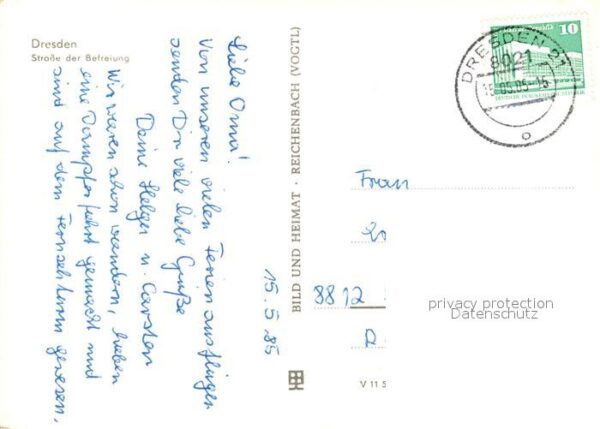 Dresden
Straße der Befreiung
Liebe Oma!
Von unseren vielen Ferienausflügen
senden Dir viele liebe Grüße
Deine Helga u. Carsten
Wir waren schon wandern, haben
eine Dampferfahrt gemacht und
sind auf dem Fernsehturm gewesen,
15.5.85
BILD UND HEIMAT · REICHENBACH (VOGTL)
V 11 5
10
DRESDEN 21
8021
Frau
8812
D
privacy protection
Datenschutz